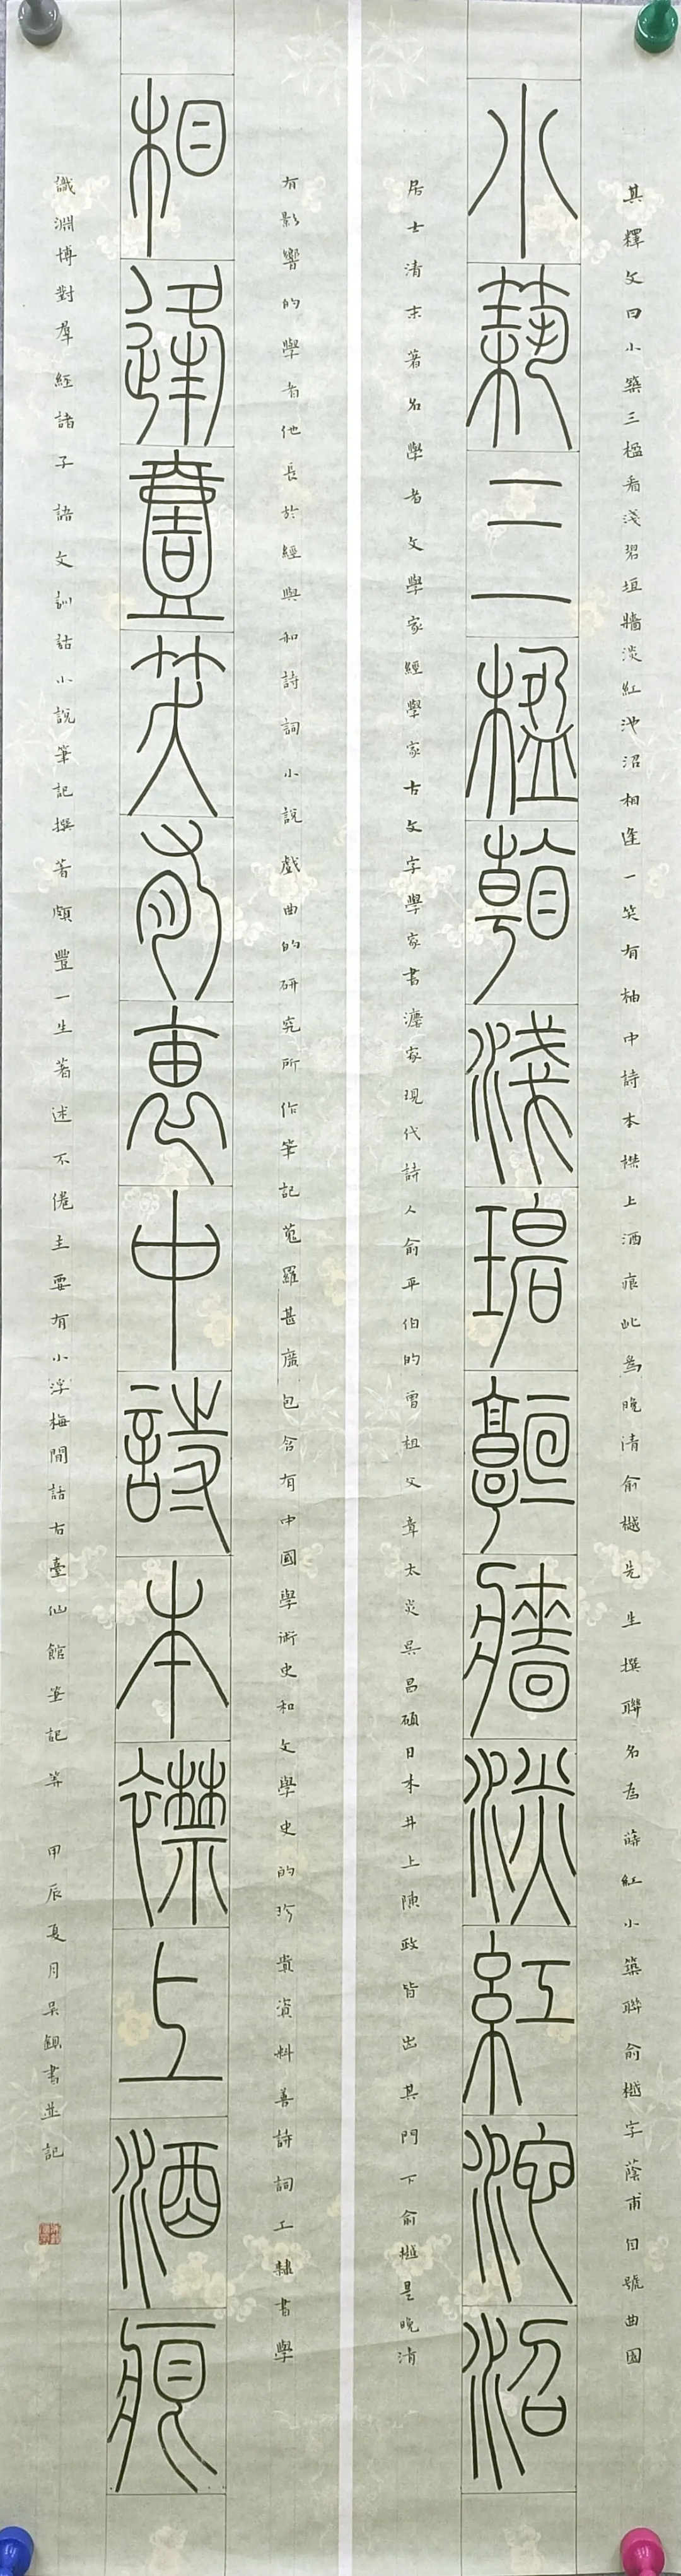 小築三楹看淺碧垣牆淡紅池沼
其釋文曰小築三楹看淺碧垣牆淡紅池沼相逢一笑有柚中詩本襟上酒痕此為晚清俞樾先生撰聯名為薛紅小築聯俞樾字蔭甫自號曲園
居士清末著名學者文學家經學家古文字學家書灋家現代詩人俞平伯的曾祖父章太炎吳昌碩日本井上陳政皆出其門下俞樾是晚清
相逢壹笑有裏中詩本襟上酒痕
有影響的學者他長於經與和詩詞小說戲曲的研究所作筆記蒐羅甚廣包含有中國學術史和文學史的珍貴資料善詩詞工隸書學
識淵博對羣經諸子語文訓詁小說筆記撰著頗豐一生著述不倦主要有小浮梅閒話右臺仙館筆記等 甲辰夏月吳鎮書並記